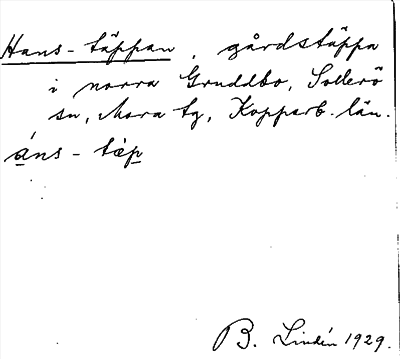 Hans-täppan, gårdstäppa
i norra Gruddbo, Sollerö
sn, Mora tg, Kopparb. län.
áns - tæp
B. Lindén 1929.